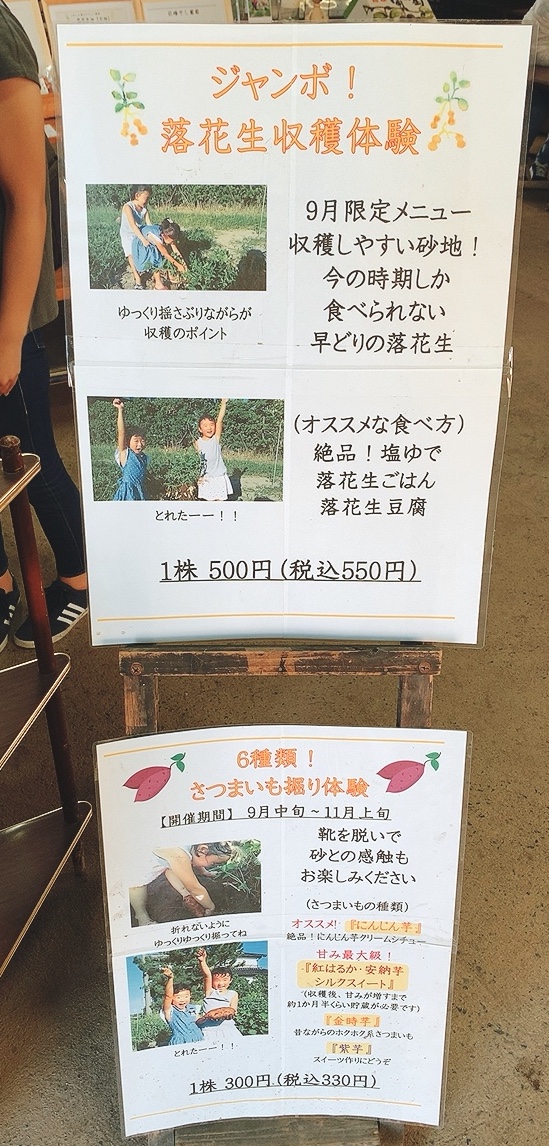 ジャンボ！
落花生収穫体験
9月限定メニュー
収穫しやすい砂地！
今の時期しか
食べられない
早どりの落花生
ゆっくり揺さぶりながらが
収穫のポイント
(オススメな食べ方)
絶品！塩ゆで
落花生ごはん
落花生豆腐
とれたーー！！
1株 500円(税込550円)
6種類！
さつまいも掘り体験
【開催期間】 9月中旬～11月上旬
靴を脱いで
砂との感触も
お楽しみください
折れないように
ゆっくりゆっくり掘ってね
(さつまいもの種類)
オススメ! 『にんじん芋』
絶品！にんじん芋クリームシチュー
甘み最大級！
『紅はるか・安納芋
シルクスイート』
(収穫後、甘みが増すまで
約1か月半くらい貯蔵が必要です)
『金時芋』
昔ながらのホクホク系さつまいも
『紫芋』
スイーツ作りにどうぞ
とれたーー！！
1株 300円(税込330円)